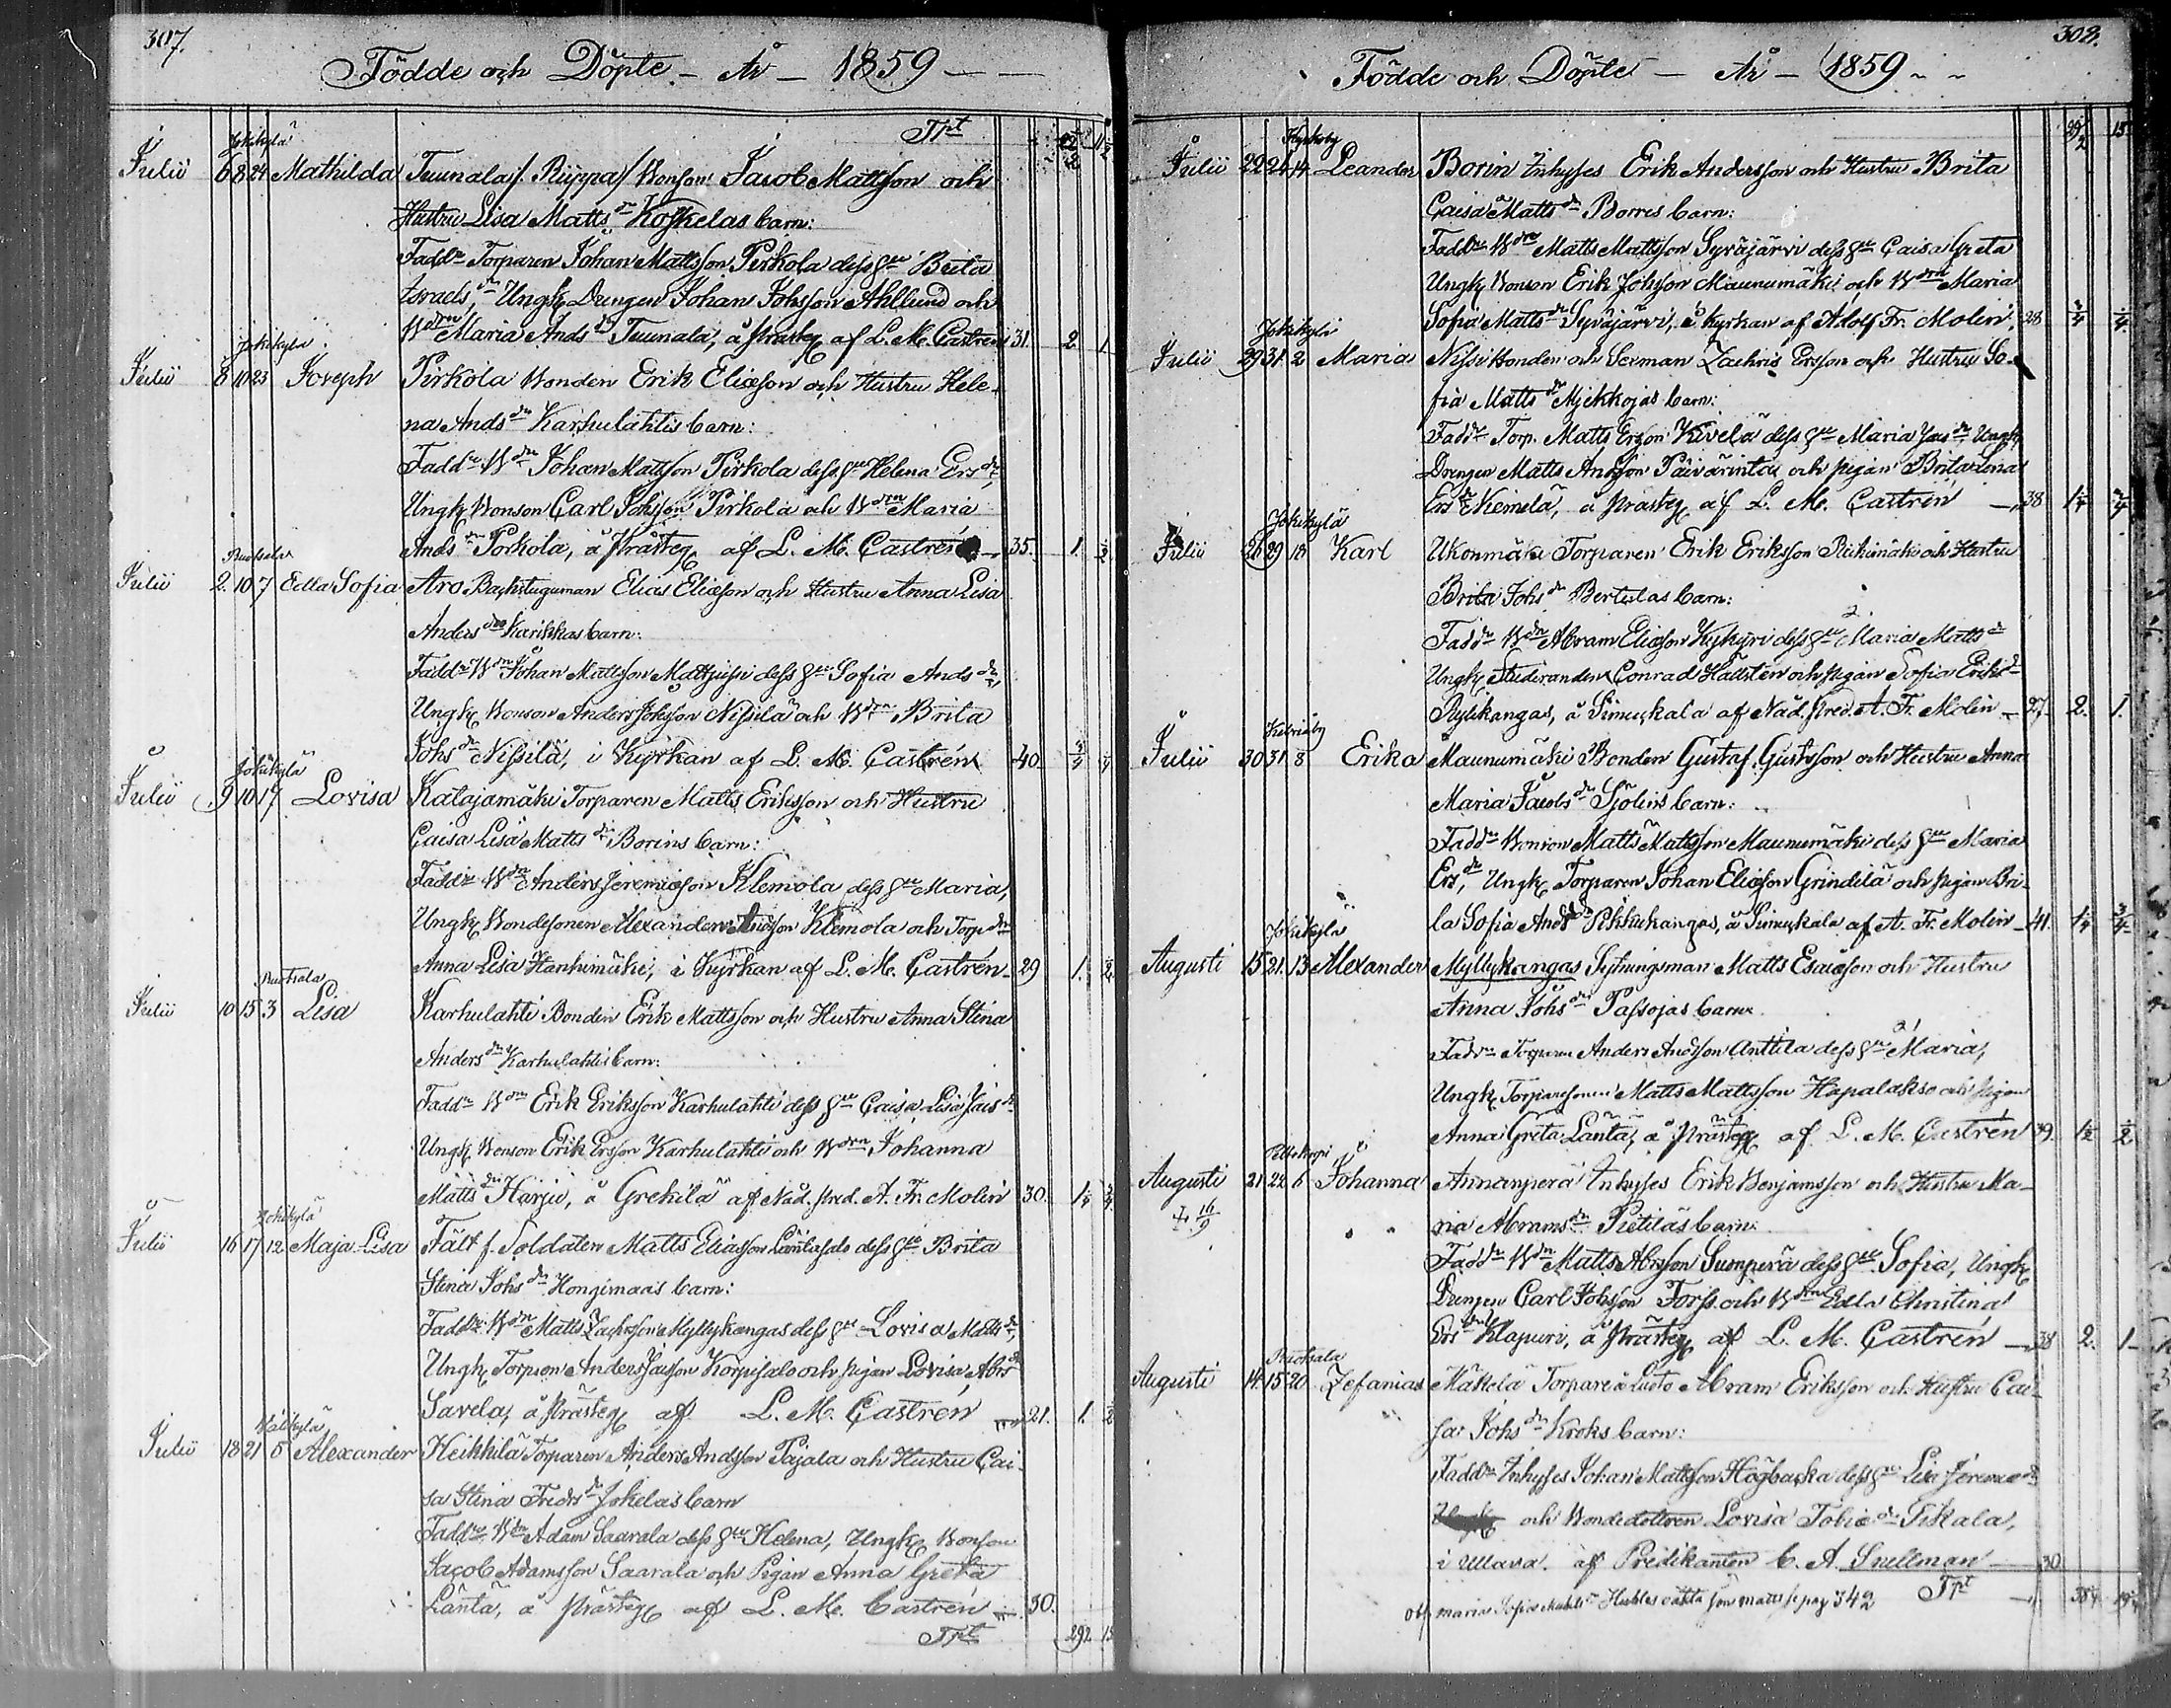 307.
Födde och Döpte - År - 1859 - -
Trpt
Jokikylä
Julii 6 8 24 Mathilda Tuunala /. Riippa / Bonson Jacob Mattsson och
Hustru Lisa Matts dr Koskelas barn:
Fadd:r Torparen Johan Mattsson Pirkola dess hu Brita
Israels dr, Ungk. Drengen Johan Johsson Ahllund och
Bdrn Maria Ands dr Tuunala, å Prästeg. af L. M. Castrén 31. 2. 1.
Jokikylä
Julii 8 10 23 Joseph Pirkola Bonden Erik Eliæson och Hustru Hele-
na Ands dr Karhulahtis barn:
Fadd:r Bdn Johan Mattsson Pirkola dess hu Helena Ers dr,
Ungk. Bonson Carl Johsson Pirkola och Bdrn Maria
Ands dr Porkola, å Prästeg. af L. M. Castrén - 35. 1. 1/2
Ruohala
Julii 2. 10 7 Edla Sofia Aro Backstuguman Elias Eliæson och Hustru Anna Lisa
Anders dr Karikkas barn:
Fadd:r Bdn Johan Mattsson dess hu Sofia Ands dr,
Ungk. Bonson Anders Johsson Nissilä och Bdrn Brita
Johs dr Nissilä, i Kyrkan af L. M. Castrén 40.
Jokikylä
Julii 9 10 17 Lovisa Katajamäki Torparen Matts Eriksson och Hustru
Caisa Lisa Matts dr Borins barn:
Fadd:r Bdn Anders Jeremiæson Klemola dess hu Maria,
Ungk. Bondesonen Alexander Andsson Klemola och Torp dr
Anna Lisa Hanhimäki, i Kyrkan af L. M. Castrén - 29 1. 1/2
Ruohala
Julii 10 15 3 Lisa Karhulahti Bonden Erik Mattsson och Hustru Anna Stina
Anders dr Karhulahtis barn:
Fadd:r Bdn Erik Eriksson Karhulahti dess hu Caisa Lisa dr
Ungk. Bonson Erik Ersson Karhulahti och Bdrn Johanna
Matts dr Harju, å Grekilä af Nåd. Pred. A. Fr. Molin 30. 1 1/4 3/4
Jokikylä
Julii 16 17 12 Maja Lisa Fält f. Soldaten Matts Eliasson Lantasalo dess hu Brita
Stina Johs dr Hongimaas barn:
Fadd:r Bdn Matts Myllykangas dess hu Lovisa Matts dr,
Ungk. Torpson Anders Korpisalo och pigan Lovisa Abrs dr
Savela, å Prästeg. af L. M. Castrén 21. 1. 1/2
Wälikylä
Julii 18 21 5 Alexander Heikkilä Torparen Anders Andsson Pajala och Hustru Cai-
sa Stina Fredrs dr Jokelas barn
Fadd:r Bdn Adam Saarala dess hu Helena, Ungk. Bonson
Jacob Adamsson Saarala och Pigan Anna Greta
Länta, å Prästeg. af L. M. Castrén - 30.
Trpt 292 15
308.
Födde och Döpte - År - 1859 - -
292 15
Kyrkoby
Julii 22 24 14 Leander Borin Inhyses Erik Andersson och Hustru Brita
Caisa Matts dr Borres barn:
Fadd:r Bdn Matts Mattsson Syväjärvi dess hu Caisa Greta
Ungk. Bonson Erik Johsson Maunumäki och Bdrn Maria
Sofia Matts dr Syväjärvi, i kyrkan af Adolf Fr. Molin, 28
Jokikylä
Julii 29 31. 2 Maria Nissi Bonden och Sexman Zachris Ersson och Hustru So-
fia Matts dr barn:
Fadd:r Torp. Matts Ersson Kivelä dess hu Maria dr Ungk.
Drengen Matts Andsson Päivärinta och pigan Brita Lena
Ers dr Kemilä, å Prästeg. af L. M. Castrén - 38
Jokikylä
Julii 26 29 18 Karl Ukonmäki Torparen Erik Eriksson och Hustru
Brita Johs dr Bertulas barn:
2.
Fadd:r Bdn Abram Eliæson Kyhyri dess hu Maria Matts dr
Ungk. Studeranden Conrad Hällsten och pigan Sofia Eriks dr
Rylikangas, å Simuskala af Nåd. Pred. A. Fr. Molin - 27. 2. 1.
Kelviåby
Julii 30 31. 8 Erika Maunumäki Bonden Gustaf Gustsson och Hustru Anna
Maria Jacobs dr Sjölins barn:
Fadd:r Bonson Matts Mattsson Maunumäki dess hu Maria
Ers dr, Ungk. Torparen Johan Eliæson Grindilä och pigan Bri-
ta Sofia Ands dr Pihkukangas, å Simuskala af A. Fr. Molin - 41. 1 1/4 3/4
Jokikylä
Augusti 15 21. 13 Alexander Myllykangas Sytningsman Matts Esaiæson och Hustru
Anna Johs dr Passojas barn.
Fadd:r Torparen Anders Andsson Anttila dess hu Maria,
Ungk. Torparesonen Matts Mattsson Hapalakso och pigan
Anna Greta Länta, å Prästeg. af L. M. Castrén 39. 1 1/2 1/2
Peltokorpi
Augusti 21 22 6 Johanna Annanperä Inhyses Erik Benjamsson och Hustru Ma-
† 16/9 ria Abrams dr Pietiläs barn:
Fadd:r Bdn Matts Abrsson Suonperä dess hu Sofia, Ungk.
Drengen Carl Johsson Forss och Bdrn Edla Christina
Ers dr Klapuri, å Prästeg. af L. M. Castrén - 38 2. 1 -
Ruohala
Augusti 14 15 20 Zefanias Mäkelä Torpare å Luoto Abram Eriksson och Hustru Cai-
sa Johs dr Kroks barn:
Fadd:r Inhyses Johan Mattsson Högbacka dess hu Lisa Jeremiæ dr
och Bondedottren Lovisa Tobiæ dr Tikala,
i Ullava. af Predikanten C. A. Snellman - 30
Maria Sofia oäkta son Matts se pag 342 Trpt